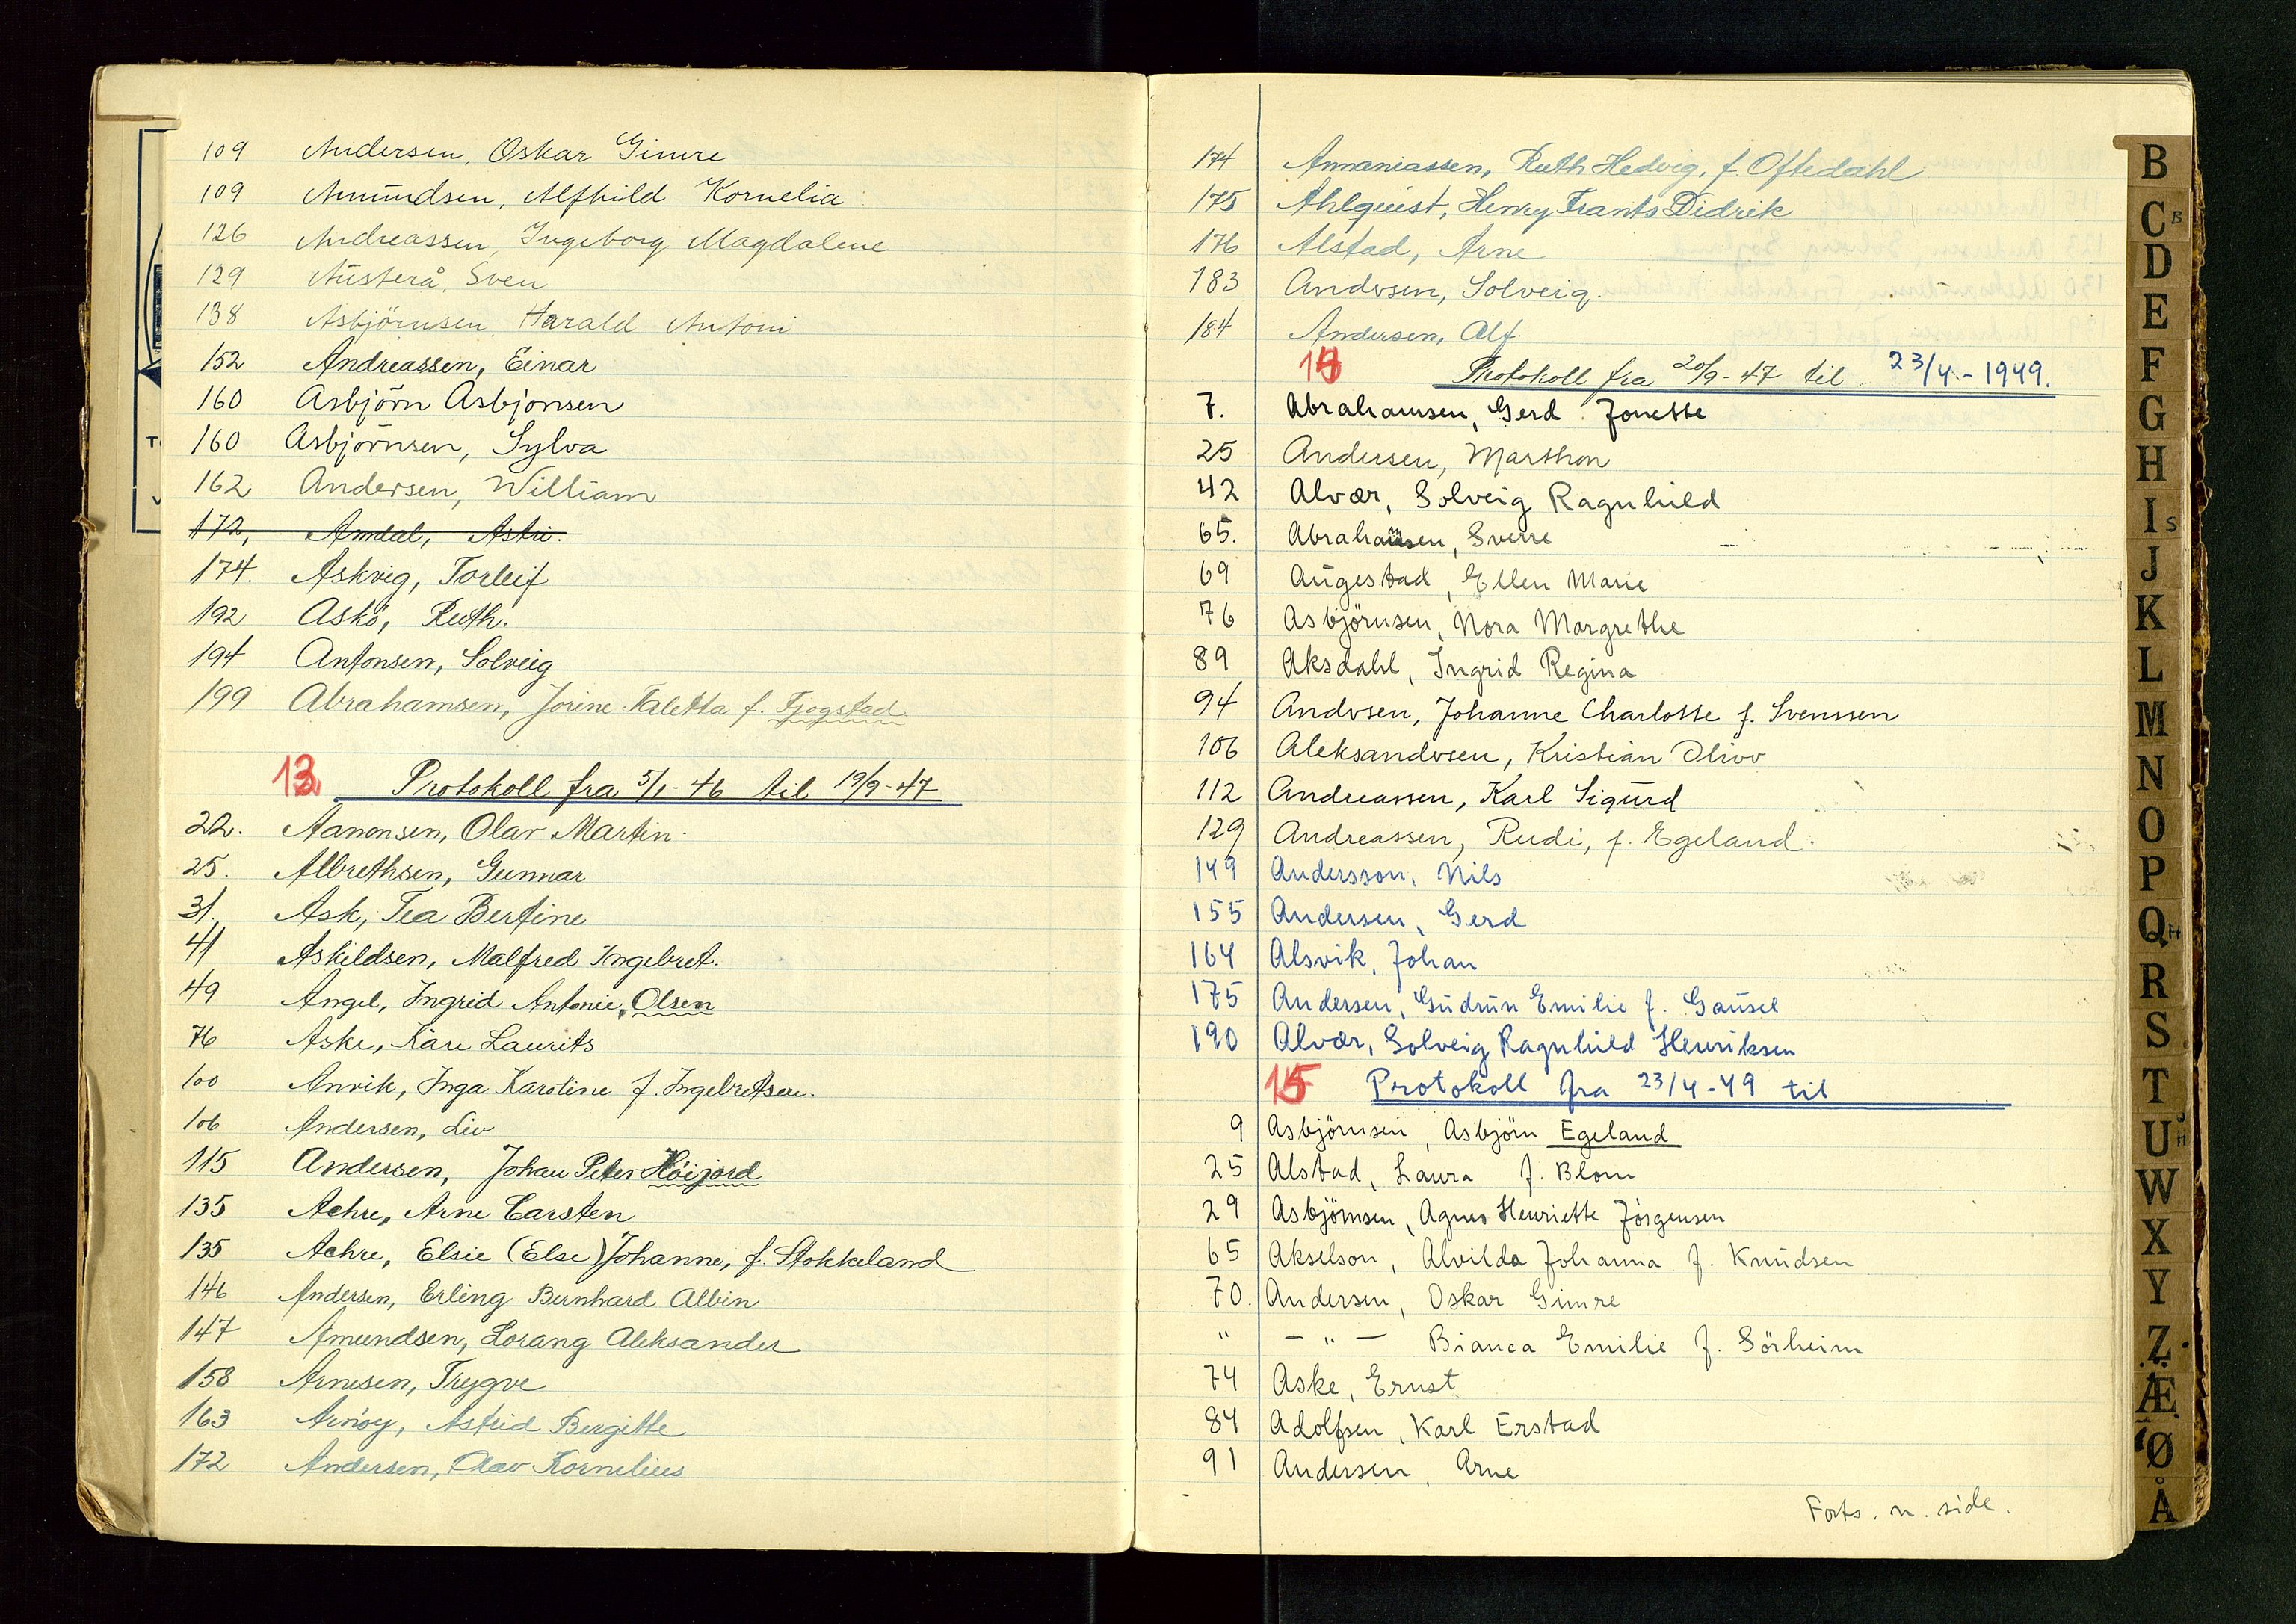 109 Andersen, Oskar Gimre
109 Amundsen, Alfhild Kornelia
126 Andreassen, Ingeborg Magdalene
129 Austerå, Sven
138 Asbjörnsen, Harald Antoni
152 Andreassen, Einar
160 Asbjörn Asbjonsen
160 Asbjörnsen, Sylva
162 Andersen, William
172, Amdal, Astri.
174. Askvig, Torleif
192 Askö, Ruth.
194 Antonsen, Solveig
199 Abrahamsen, Jorine Taletta f. Fjogstad
13 Protokoll fra 5/1-46 til 19/9-47
22. Aanonsen, Olav Martin.
25. Albrethsen, Gunnar
31. Ask, Tea Bertine
41 Askildsen, Malfred Ingebret.
49 Angel, Ingrid Antonie, Olsen
76 Aske, Kåre Laurits
100 Anvik, Inga Karoline f. Ingebretsen.
106 Andersen, Liv
115 Andersen, Johan Peter Höijord
135 Aehre, Arne Carsten
135 Aehre, Elsie (Else) Johanne, f. Stokkeland
146 Andersen, Erling Bernhard Albin
147 Amundsen, Lorang Aleksander
158 Arnesen, Trygve
163 Arnöy, Astrid Bergitte
172 Andersen, Olav Kornelius
174 Annaniassen, Ruth Hedvig, f. Oftedahl
175 Ahlquist, Henry Frants Didrik
176 Alstad, Arne
183 Andersen, Solveig.
184 Andersen, Alf.
14 Protokoll fra 20/9-47 til 23/4-1949.
7. Abrahamsen, Gerd Jonette
25 Andersen, Marthon
42 Alvær, Solveig Ragnhild
65. Abrahamsen, Sverre
69 Augestad, Ellen Marie
76 Asbjörnsen, Nora Margrethe
89 Aksdahl, Ingrid Regina
94 Andersen, Johanne Charlotte f. Svenssen
106 Aleksandersen, Kristian Oliver
112 Andreassen, Karl Sigurd
129 Andreassen, Rudi, f. Egeland.
149 Andersson, Nils
155 Andersen, Gerd
164 Alsvik, Johan
175 Andersen, Gudrun Emilie f. Gausel
190 Alvær, Solveig Ragnhild Henriksen
15 Protokoll fra 23/4-49 til
9 Asbjörnsen, Asbjörn Egeland
25 Alstad, Laura f. Blom
29 Asbjörnsen, Agnes Henriette Jörgensen
65 Akselson, Alvilda Johanna f. Knudsen
70. Andersen, Oskar Gimre
" - " - Bianca Emilie f. Sörheim
74 Aske, Ernst
84 Adolfsen, Karl Erstad
91 Andersen, Arne
Forts. n. side.
B
C B
D
E
F
G
H
I S
J
K
L
M
N
O
P
Q H
R
S
T
U J H
W
X
Y
Z
Æ
Ø
Å